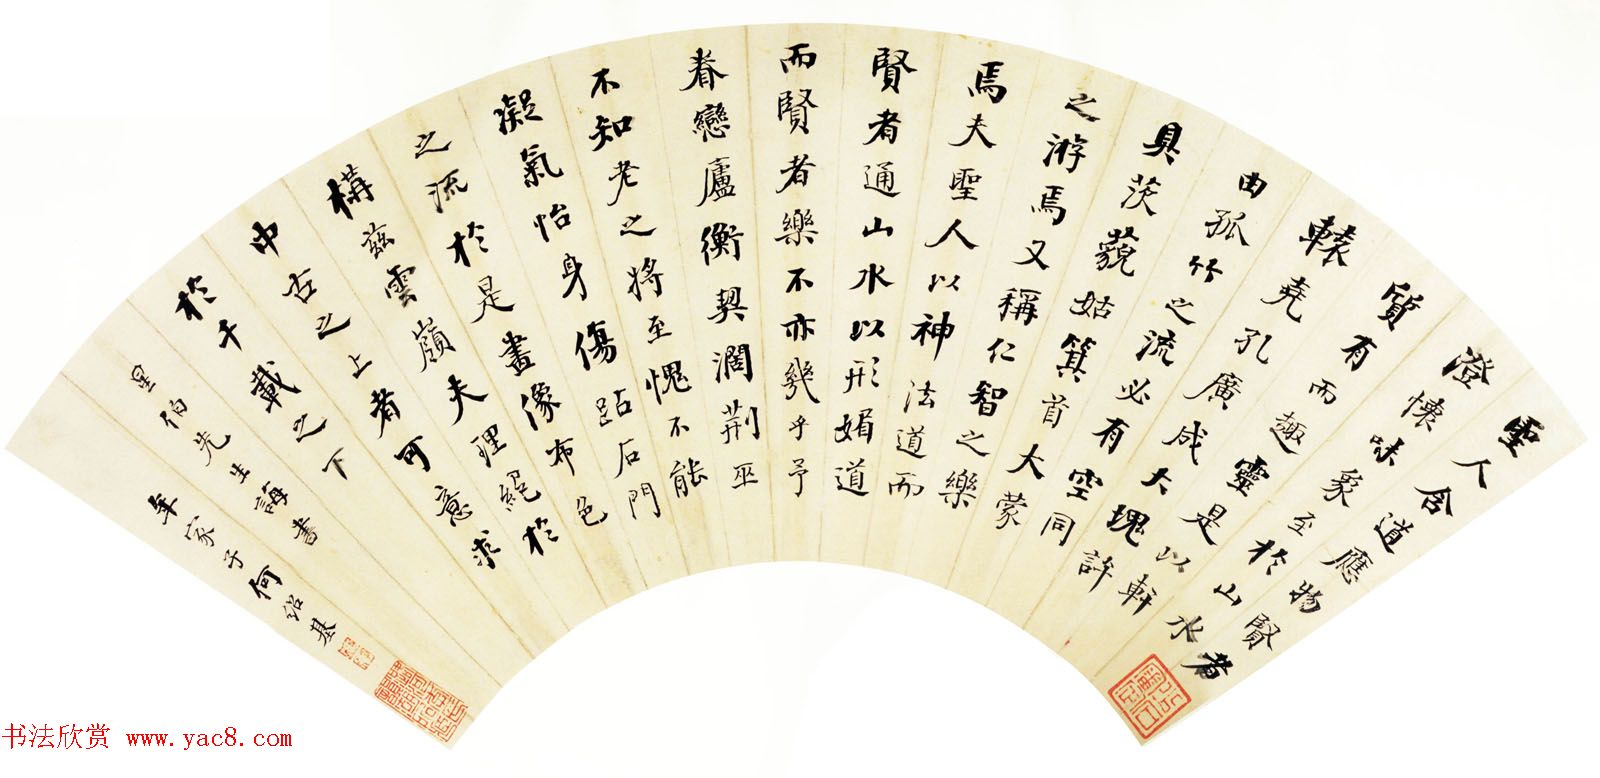 聖人含道應物賢者
澄懷味象至於山水
質有而趣靈是以軒
轅堯孔廣成大塊許
由孤竹之流必有空同
具茨藐姑箕首大蒙
之游焉又稱仁智之樂
焉夫聖人以神法道而
賢者通山水以形媚道
而賢者樂不亦幾乎予
眷戀廬衡契濶荊巫
不知老之將至愧不能
凝氣怡身傷跕石門
之流於是畫像布色
構茲雲嶺夫理絕於
中古之上者可意求
於千載之下
星伯先生誨書
年家子何紹基
书法欣赏 www.yac8.com